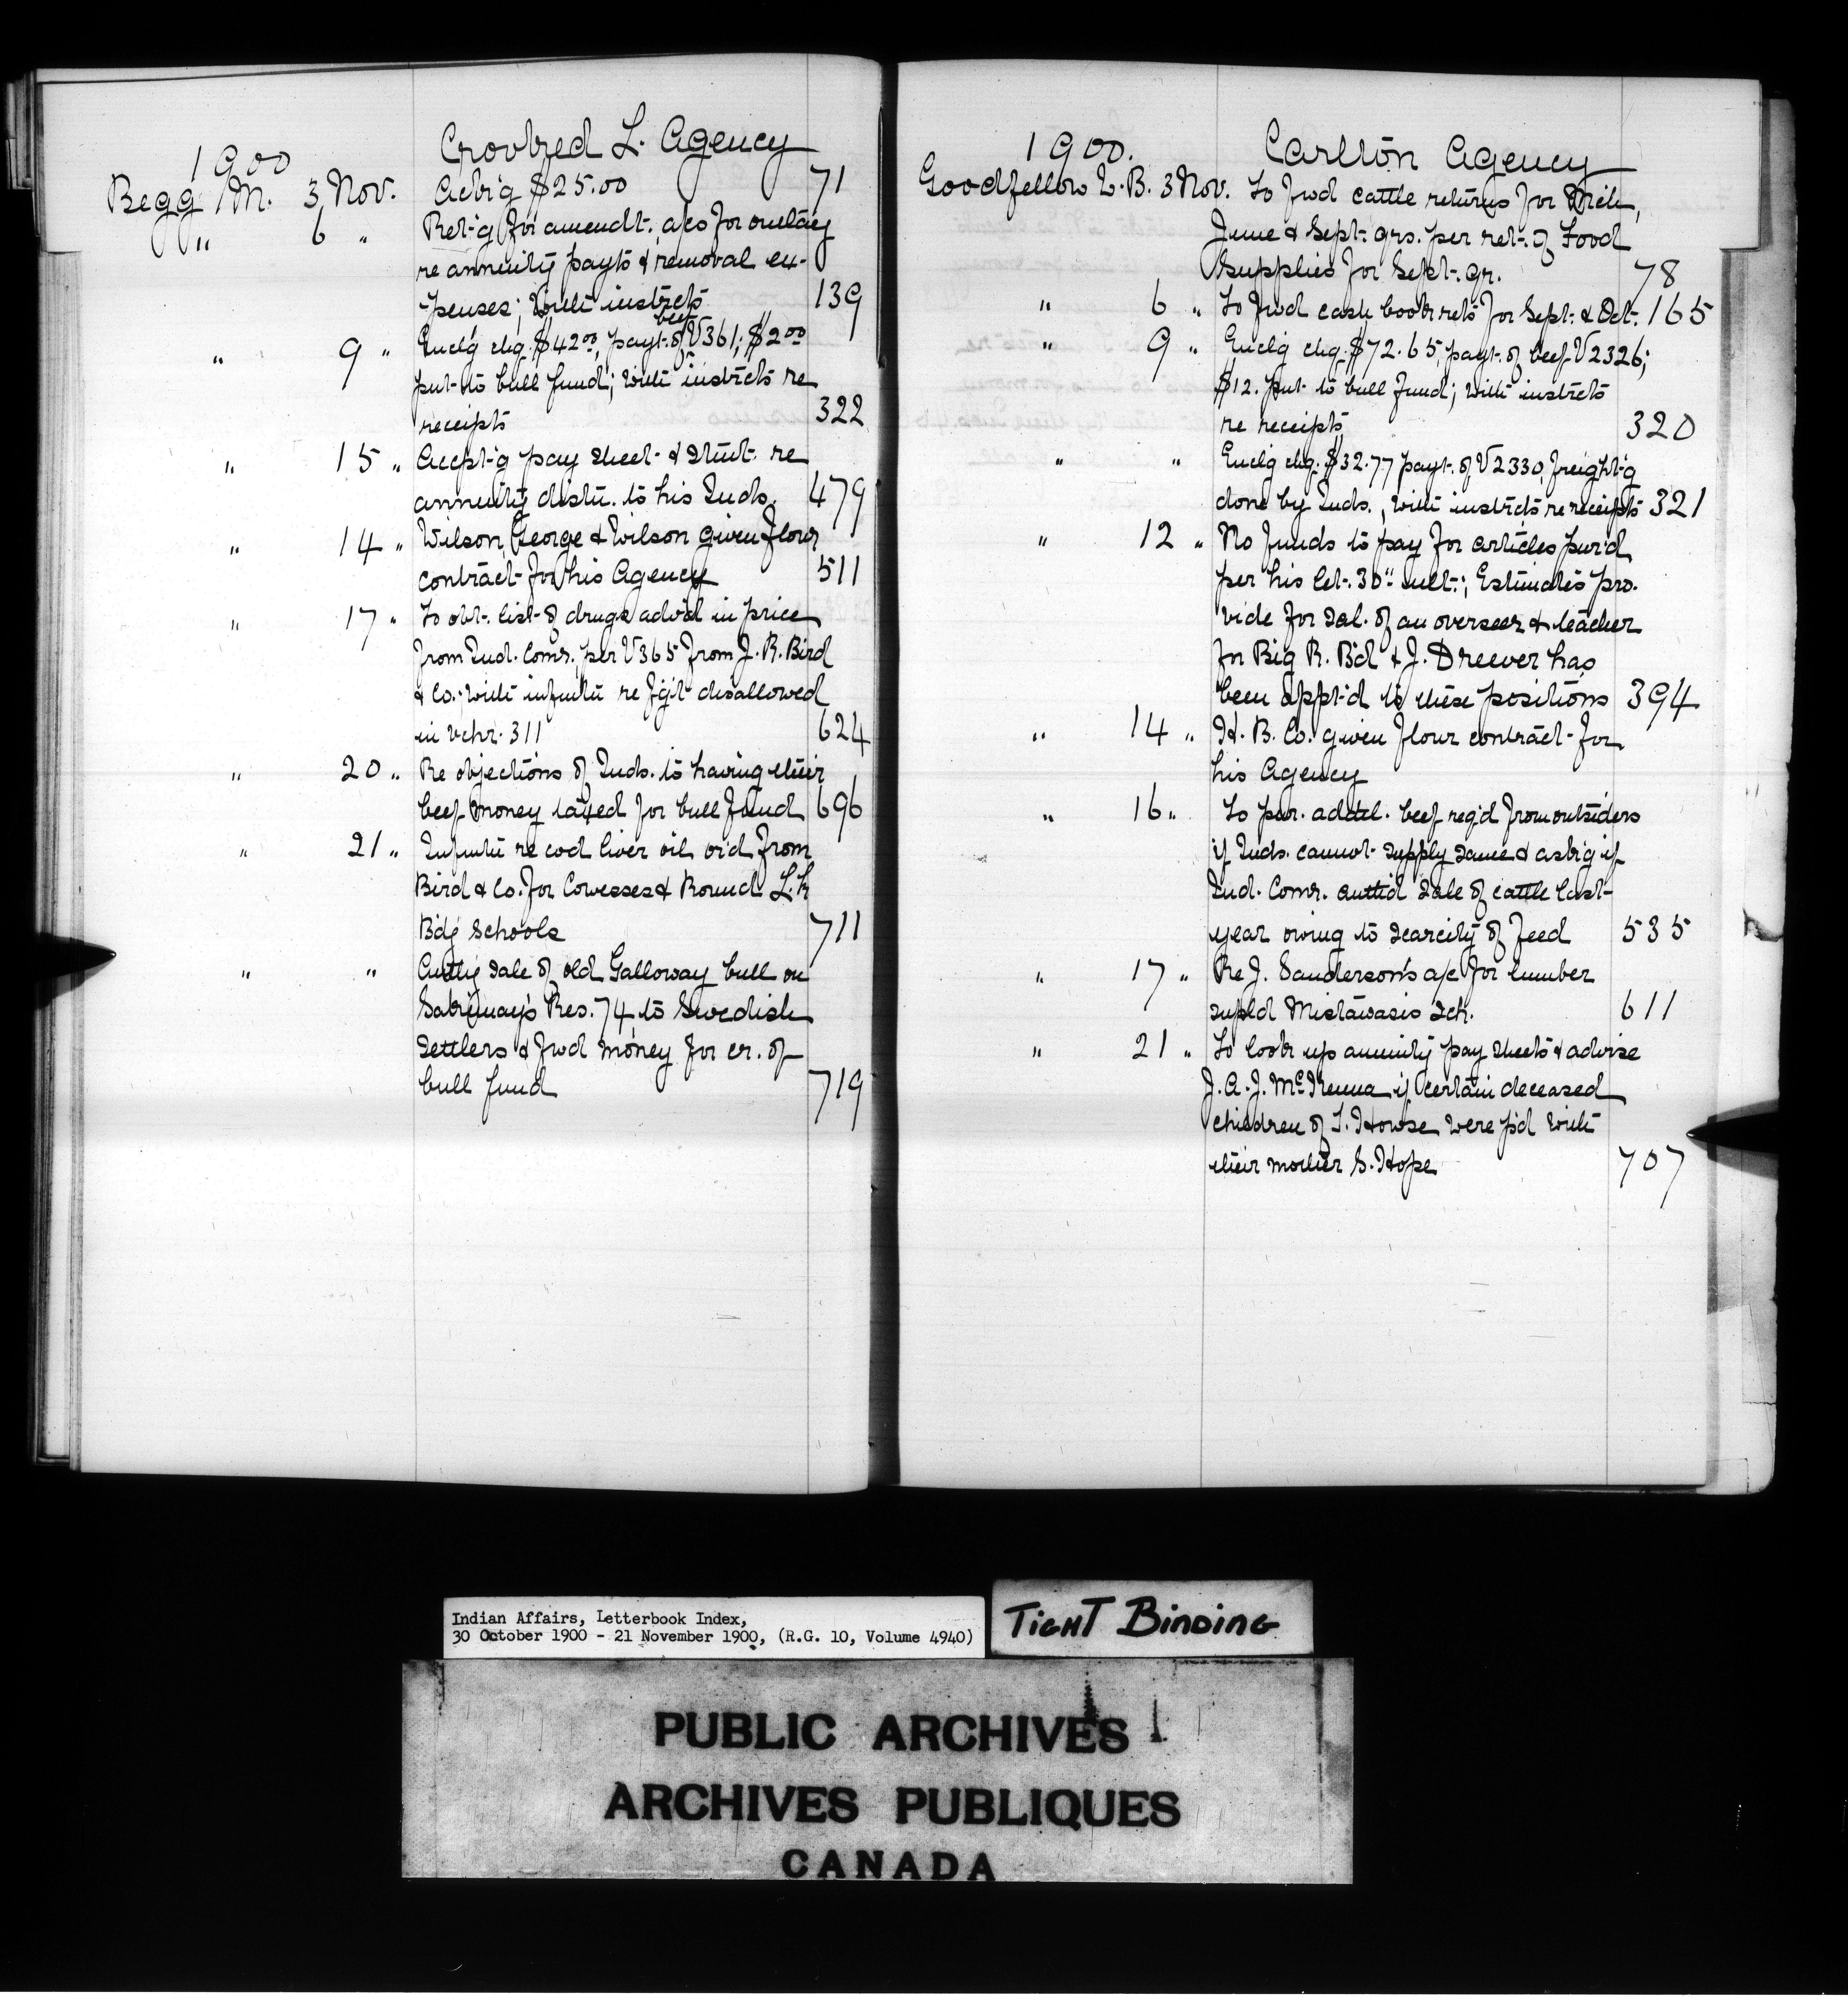 1900 Crooked L. Agency
Begg M. 3 Nov. Ackg $25.00 71
" 6 " Ret-g for amendt. a/cs for outlay
re annuity payts & removal ex-
penses; with instrcts 139
" 9 " Enclg chq. $42.00, payt. of beef V361; $2.00
put to bull fund; with instrcts re
receipts 322
" 15 " Accpt-g pay sheet & stmt. re
annuity distn. to his Inds. 479
" 14 " Wilson, George & Wilson given flour
contract for his Agency 511
" 17 " To obt. list of drugs advd in price
from Ind. Comr. per V365 from J. R. Bird
& Co. with infmtn re fgt disallowed
in vchr. 311 624
" 20 " Re objections of Inds. to having their
beef money taxed for bull fund 696
" 21 " Infmtn re cod liver oil ord from
Bird & Co. for Cowesses & Round L. k
Bdg Schools 711
" " Authg sale of old Galloway bull on
Sakimay's Res. 74, to Swedish
settlers & fwd money for cr. of
bull fund 719
1900. Carlton Agency
Goodfellow L. B. 3 Nov. To fwd cattle returns for Mch,
June & Sept. qrs. per ret. of Food
Supplies for Sept. qr. 78
" 6 " To fwd cash book rets for Sept. & Oct. 165
" 9 " Enclg chq. $72.65, payt. of beef V2326;
$12. put to bull fund; with instrcts
re receipts 320
" " Enclg chq. $32.77 payt. of V2330, freight'g
done by Inds., with instrcts re receipts 321
" 12 " No funds to pay for articles pur'd
per his let. 30" ult.; Estimates pro-
vide for sal. of an overseer & teacher
for Big R. Bd & J. Dreever has
been appt'd to these positions 394
" 14 " H. B. Co. given flour contract for
his Agency
" 16 " To pur. addtl. beef reqd from outsiders
if Inds. cannot supply same & askg if
Ind. Comr. authd sale of cattle last
year owing to scarcity of feed 535
" 17 " Re J. Sanderson's a/c for lumber
supld Mistawasis Sch. 611
" 21 " To look up annuity pay sheets & advise
J. A. J. McKenna if certain deceased
children of T. Howse were p'd with
their mother S. Hope 707
Indian Affairs, Letterbook Index,
30 October 1900 - 21 November 1900, (R.G. 10, Volume 4940)
TIGHT BINDING
PUBLIC ARCHIVES
ARCHIVES PUBLIQUES
CANADA